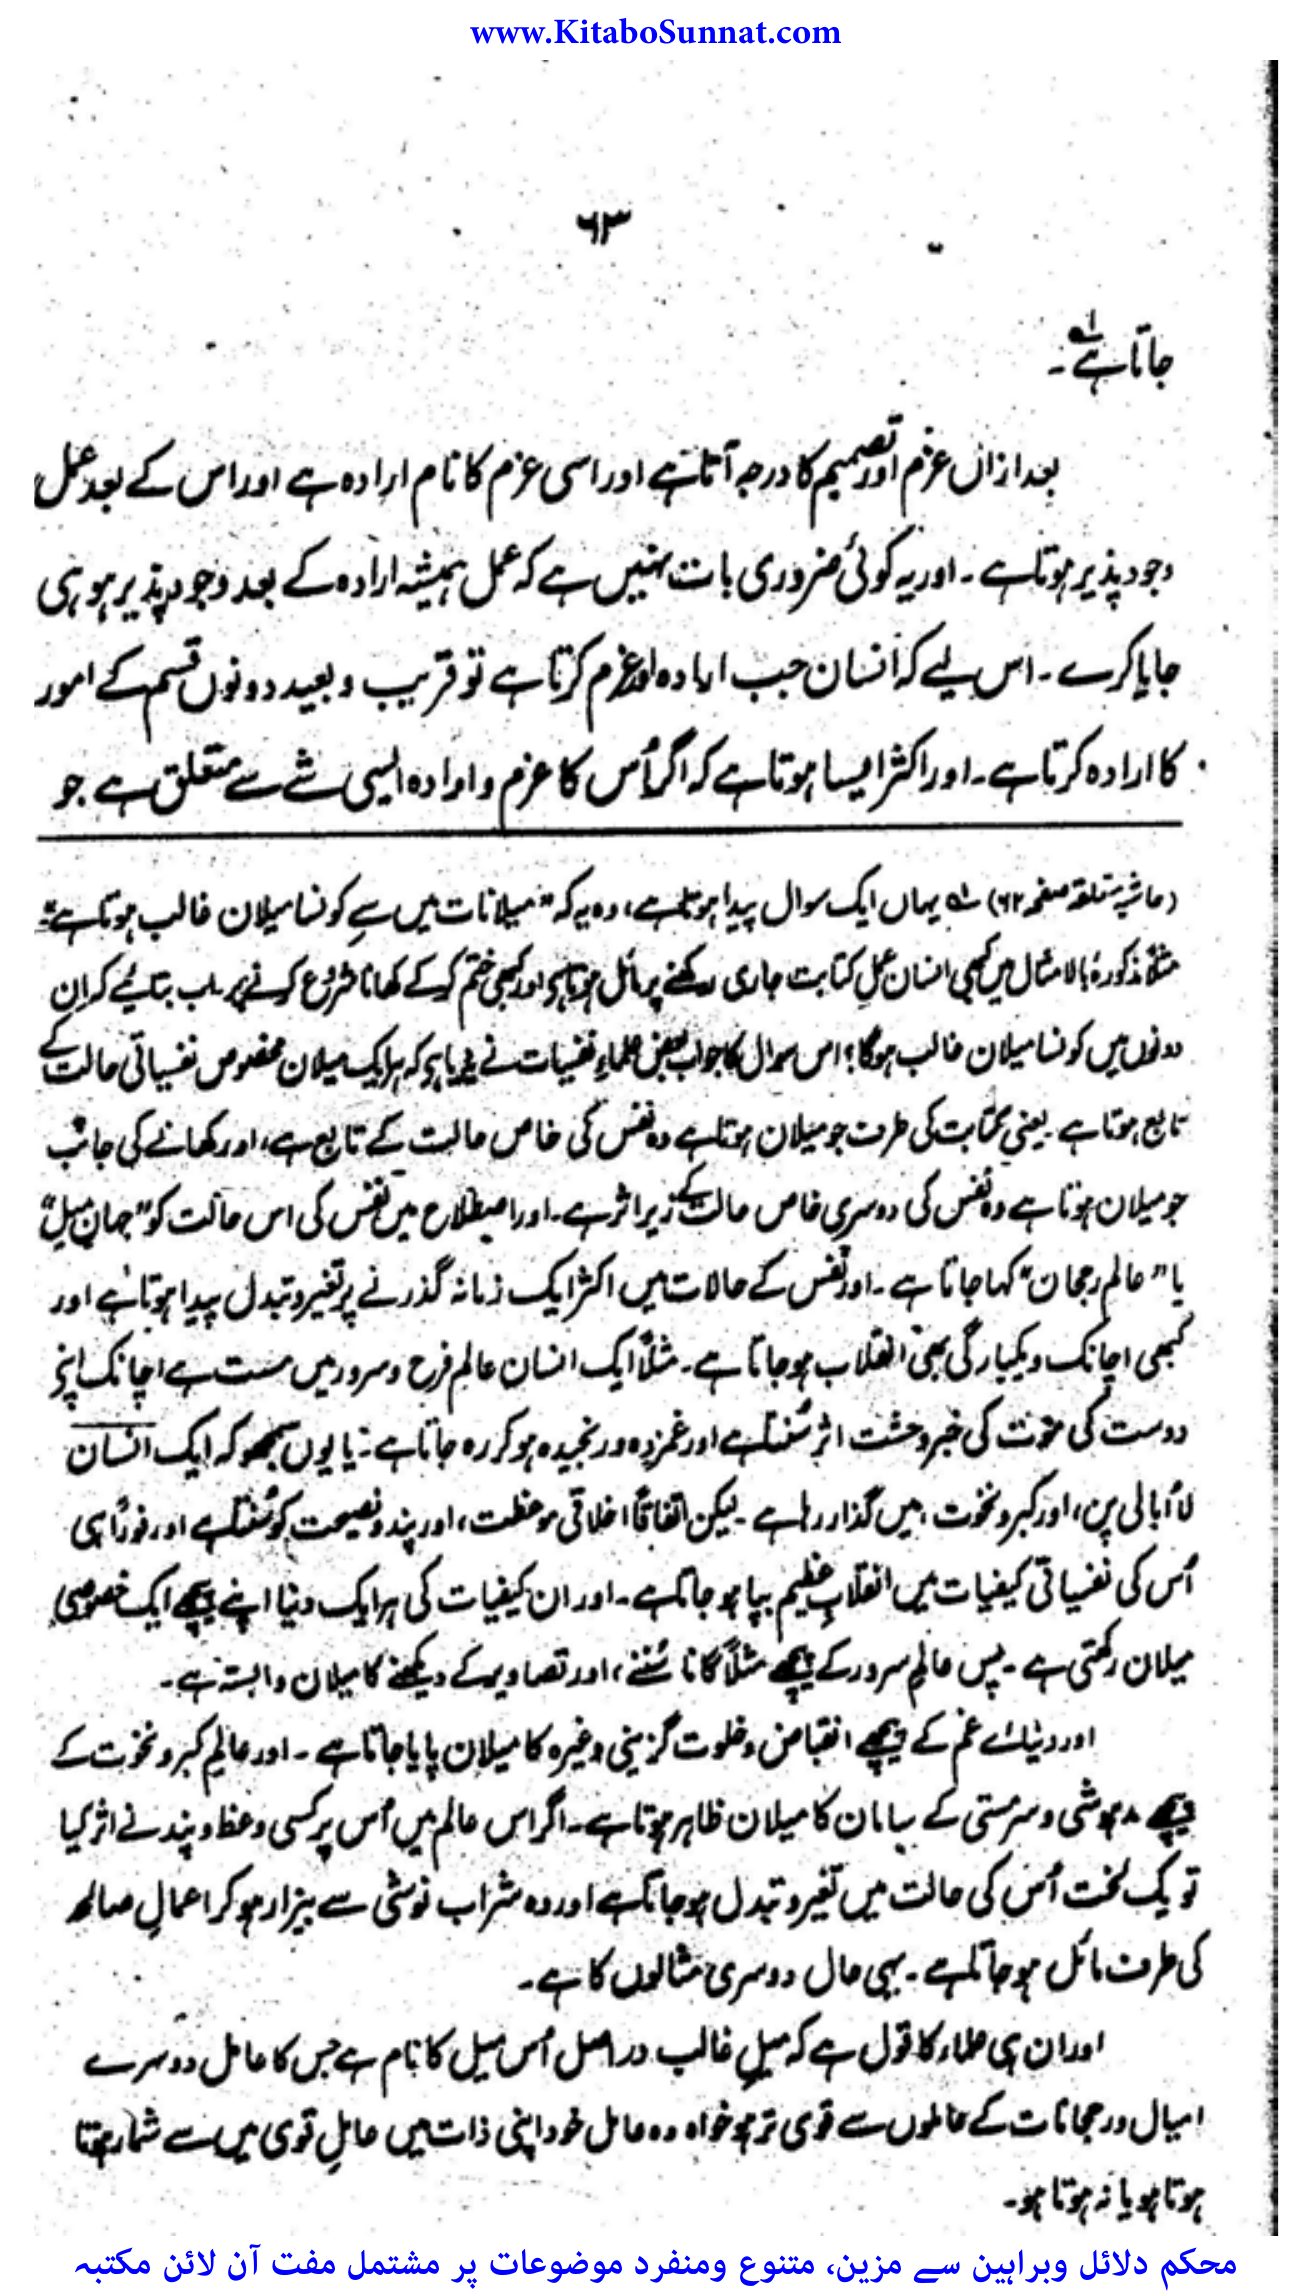 www.KitaboSunnat.com
۶۳
جاتا ہے لہ۔
بعد ازاں عزم اور تصمیم کا درجہ آتا ہے اور اسی عزم کا نام ارادہ ہے اور اس کے بعد عمل
وجود پذیر ہوتا ہے ۔ اور یہ کوئی ضروری بات نہیں ہے کہ عمل ہمیشہ ارادہ کے بعد وجود پذیر ہو ہی
جایا کرے ۔ اس لیے کہ انسان جب ارادہ اور عزم کرتا ہے تو قریب و بعید دونوں قسم کے امور
کا ارادہ کرتا ہے ۔ اور اکثر ایسا ہوتا ہے کہ اگر اُس کا عزم و ارادہ ایسی شے سے متعلق ہے جو
(حاشیہ متعلقہ صفحہ ۶۲) لہ یہاں ایک سوال پیدا ہوتا ہے، وہ یہ کہ "میلانات میں سے کونسا میلان غالب ہوتا ہے"؟
مثلاً مذکورۂ بالا مثال میں کبھی انسان عملِ کتابت جاری رکھنے پر مائل ہوتا ہے اور کبھی ختم کر کے کھانا شروع کرنے پر۔ اب بتائیے کہ ان
دونوں میں کونسا میلان غالب ہوگا؟ اس سوال کا جواب بعض علماءِ نفسیات نے یہ دیا ہے کہ ہر ایک میلان مخصوص نفسیاتی حالت کے
تابع ہوتا ہے ۔ یعنی کتابت کی طرف جو میلان ہوتا ہے وہ نفس کی خاص حالت کے تابع ہے، اور کھانے کی جانب
جو میلان ہوتا ہے وہ نفس کی دوسری خاص حالت کے زیر اثر ہے ۔ اور اصطلاح میں نفس کی اس حالت کو "جہانِ میل"
یا "عالم رجحان" کہا جاتا ہے ۔ اور نفس کے حالات میں اکثر ایک زمانہ گذرنے پر تغیر و تبدل پیدا ہوتا ہے اور
کبھی اچانک و یکبارگی بھی انقلاب ہو جاتا ہے ۔ مثلاً ایک انسان عالمِ فرح و سرور میں مست ہے اچانک اپنے
دوست کی موت کی خبرِ وحشت اثر سُنتا ہے اور غمزدہ و رنجیدہ ہو کر رہ جاتا ہے ۔ یا یوں سمجھو کہ ایک انسان
لاأبالی پن، اور کبر و نخوت، میں گذار رہا ہے ۔ لیکن اتفاقاً اخلاقی موعظت، اور پند و نصیحت کو سُنتا ہے اور فوراً ہی
اُس کی نفسیاتی کیفیات میں انقلابِ عظیم بپا ہو جاتا ہے ۔ اور ان کیفیات کی ہر ایک دنیا اپنے پیچھے ایک خصوصی
میلان رکھتی ہے ۔ پس عالمِ سرور کے پیچھے مثلاً گانا سُننے، اور تصاویر کے دیکھنے کا میلان وابستہ ہے ۔
اور دنیائے غم کے پیچھے انقباض و خلوت گزینی وغیرہ کا میلان پایا جاتا ہے ۔ اور عالمِ کبر و نخوت کے
پیچھے مدہوشی و سرمستی کے سامان کا میلان ظاہر ہوتا ہے ۔ اگر اس عالم میں اُس پر کسی وعظ و پند نے اثر کیا
تو یک لخت اُس کی حالت میں تغیر و تبدل ہو جاتا ہے اور وہ شراب نوشی سے بیزار ہو کر اعمالِ صالحہ
کی طرف مائل ہو جاتا ہے ۔ یہی حال دوسری مثالوں کا ہے ۔
اور ان ہی علماء کا قول ہے کہ میلِ غالب دراصل اُس میل کا نام ہے جس کا عامل دوسرے
امیال و رجحانات کے عاملوں سے قوی تر ہو خواہ وہ عامل خود اپنی ذات میں عاملِ قوی میں سے شمار ہوتا
ہوتا ہو یا نہ ہوتا ہو ۔
محکم دلائل وبراہین سے مزین، متنوع ومنفرد موضوعات پر مشتمل مفت آن لائن مکتبہ